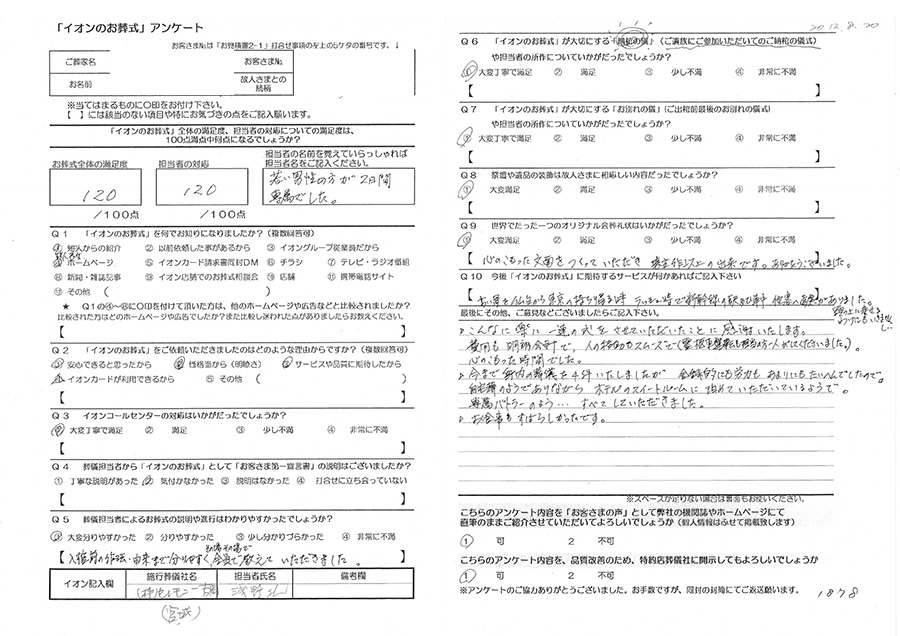 「イオンのお葬式」アンケート
お客さま№は「お見積書2-1」打合せ事項の左上の5ケタの番号です。↓
ご葬家名
お客さま№
お名前
故人さまとの続柄
※当てはまるものに○印をお付け下さい。
【 】には該当のない項目や特にお気づきの点をご記入願います。
「イオンのお葬式」全体の満足度、担当者の対応についての満足度は、
100点満点中何点になるでしょうか?
お葬式全体の満足度
担当者の対応
担当者の名前を覚えていらっしゃれば
担当者名をご記入ください。
120
120
若い男性の方が2日間
専属でした。
/100点
/100点
Q1 「イオンのお葬式」を何でお知りになりましたか?(複数回答可)
① 知人からの紹介 ② 以前依頼した事があるから ③ イオングループ従業員だから
④ ホームページ ⑤ イオンカード請求書同封DM ⑥ チラシ ⑦ テレビ・ラジオ番組
⑧ 新聞・雑誌記事 ⑨ イオン店頭でのお葬式相談会 ⑩ 店舗 ⑪ 携帯電話サイト
⑫ その他 ( )
★ Q1の④~⑥に○印を付けて頂いた方は、他のホームページや広告などと比較されましたか?
比較された方はどのホームページや広告でしたか?また比較し迷われた点がありましたらお教えください。
【 】
Q2 「イオンのお葬式」をご依頼いただきましたのはどのような理由からですか?(複数回答可)
① 安心できると思ったから ② 価格面から(明瞭さ) ③ サービスや品質に期待したから
④ イオンカードが利用できるから ⑤ その他 ( )
【 】
Q3 イオンコールセンターの対応はいかがだったでしょうか?
① 大変丁寧で満足 ② 満足 ③ 少し不満 ④ 非常に不満
【 】
Q4 葬儀担当者から「イオンのお葬式」として「お客さま第一宣言書」の説明はございましたか?
① 丁寧な説明があった ② 気付かなかった ③ 説明はなかった ④ 打合せに立ち会っていない
【 】
Q5 葬儀担当者によるお葬式の説明や進行はわかりやすかったでしょうか?
① 大変分りやすかった ② 分りやすかった ③ 少し分かりづらかった ④ 非常に不満
その場その場で
【入棺前の作法・由来まで分りやすく全員で教えていただきました。】
イオン記入欄
施行葬儀社名
担当者氏名
備考欄
(宮城)
2012.8.20
Q6 「イオンのお葬式」が大切にする「納棺の儀」(ご遺族にご参加いただいてのご納棺の儀式)
や担当者の所作についていかがだったでしょうか?
① 大変丁寧で満足 ② 満足 ③ 少し不満 ④ 非常に不満
【 】
Q7 「イオンのお葬式」が大切にする「お別れの儀」(ご出棺前最後のお別れの儀式)
や担当者の所作についていかがだったでしょうか?
① 大変丁寧で満足 ② 満足 ③ 少し不満 ④ 非常に不満
【 】
Q8 祭壇や遺品の装飾は故人さまに相応しい内容だったでしょうか?
① 大変満足 ② 満足 ③ 少し不満 ④ 非常に不満
【 】
Q9 世界でたった一つのオリジナル会葬礼状はいかがだったでしょうか?
① 大変満足 ② 満足 ③ 少し不満 ④ 非常に不満
【心のこもった文面をつくっていただき 以上の出来です。ありがとうございました。
Q10 今後「イオンのお葬式」に期待するサービスが何かあればご記入下さい
最後にその他、ご意見などございましたらご記入下さい。
こんなに楽に一連の式をさせていただいたことに感謝いたします。
費用も明朗会計で、人の移動もスムーズで
心のこもった時間でした。
今まで 4件いたしましたが 金銭的にも労力も
自宅葬のようでありながら ホテルのスイートルームに泊めていただいているようで。
専属バトラーのよう… すべてしていただきました。
お食事もすばらしかったです。
※スペースが足りない場合は裏面もお使いください。
こちらのアンケート内容を「お客さまの声」として弊社の機関誌やホームページにて
直筆のままご紹介させていただいてよろしいでしょうか(個人情報はふせて掲載致します)
1 可 2 不可
こちらのアンケート内容を、品質改善のため、特約店葬儀社に開示してもよろしいでしょうか
1 可 2 不可
※アンケートのご協力ありがとうございました。お手数ですが、同封の封筒にてご返送願います。
1878